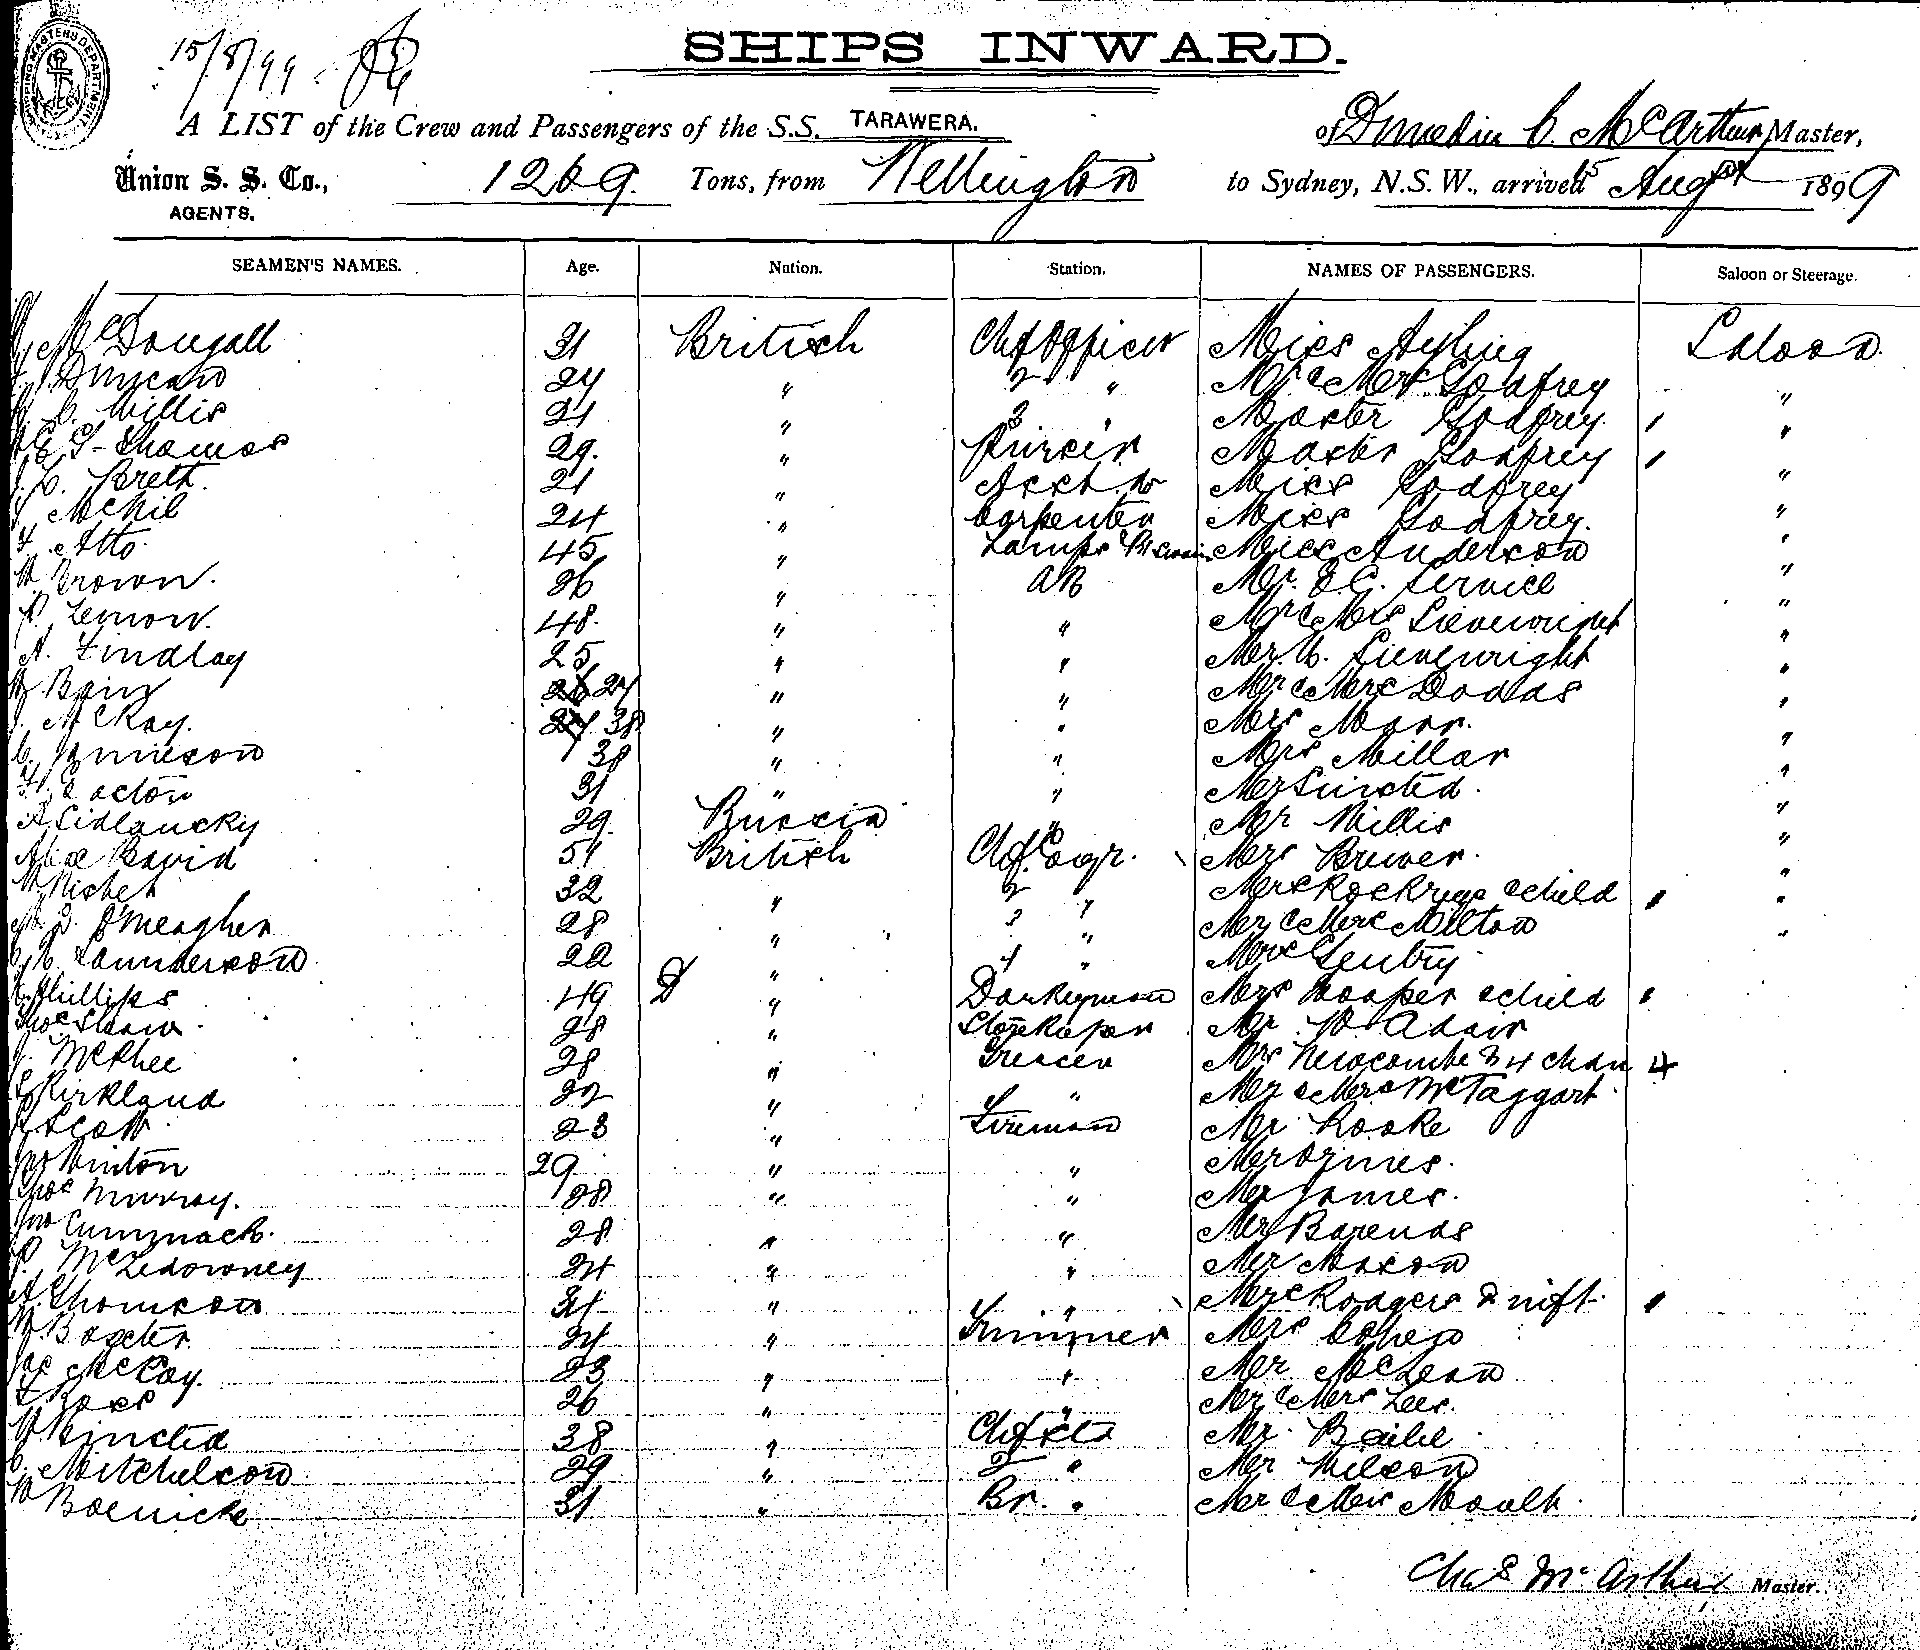 SHIPS INWARD.
15/8/99
A LIST of the Crew and Passengers of the S.S. TARAWERA. of Dunedin C. McArthur Master,
Union S. S. Co., 1269. Tons, from Wellington to Sydney, N.S.W., arrived 15 Augst 1899
AGENTS.
SEAMEN'S NAMES. Age. Nation. Station. NAMES OF PASSENGERS. Saloon or Steerage.
McDougall 31 British Chf Officer Miss Ayling Saloon
Duncan 27 " 2 " Mr & Mrs Godfrey "
C. Willis 21 " 3 " Master Godfrey "
Thomas 29. " Purser Master Godfrey "
Breth 21 " Asst do Miss Godfrey "
McNeil 24 " Carpenter Miss Godfrey. "
Atto 45 " Lamps Miss Anderson "
W. Brown. 36 " AB Mr. E.C. Service "
P. Lemon. 48. " " Mr & Mrs Sievewright "
A. Findlay 25 " " Mr. Sievewright "
Bain 27 " " Mr & Mrs Dodds "
McKay. 38 " " Mrs Marr. "
Jamieson 38 " " Mrs Millar "
Eacton 31 " " Mr "
A Sidlaucky 29. Russia " Mr Willis "
Alexr David 51 British Chf Engr. Mrs Brewer. "
Nisbet 32 " 2 " Mrs Rockrige & child "
O'Meagher 28 " 3 " Mr & Mrs Milton "
Saunderson 22 " 4 " Mrs Gentry
Phillips 49 " Donkeyman Mrs Hooper & child
Thos Shaw 28 " Storekeeper Mr W. Adair
J. McPhee 28 " Greaser Mrs Newcombe & 4 chdn 4
Kirkland 32 " " Mr & Mrs McTaggart
Scott 23 " Fireman Mr Rooke
Jno Hinton 29 " " Mr
Thos Murray. 28 " " Mr James.
Jno Cummack. 28 " " Mr Barends
P McLedowney 24 " " Mr Mason
A. Thomson 31 " " Mrs Rodgers & inft.
W Baxter 24 " Trimmer Mrs Cohen
Jas McCoy. 23 " " Mr McLean
Ross 26 " " Mr & Mrs Lees.
W Binsted 38 " Chf std Mr. Bailie
C. Mitchelson 29 " 2 " Mr Wilson
W Boenicke 31 " Br. " Mr & Mrs Moult.
Chas McArthur Master.